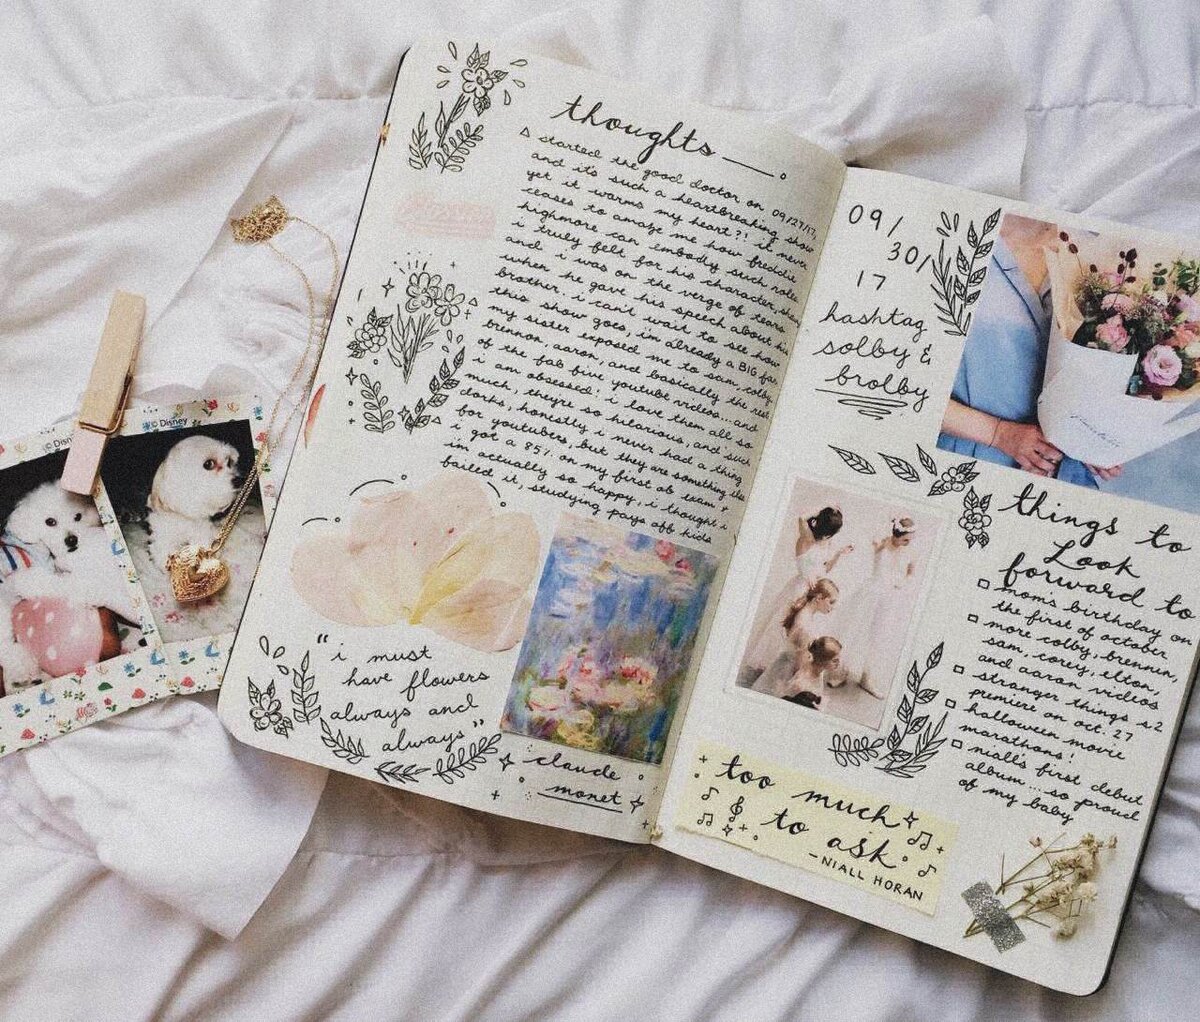 thoughts
started the good doctor on 09/27/17,
and it's such a heartbreaking show
yet it warms my heart?! it never
ceases to amaze me how freddie
highmore can embody such roles.
i truly felt for his character, shaun
and i was on the verge of tears
when he gave his speech about his
brother. i can't wait to see how
this show goes, i'm already a BIG fan
my sister exposed me to sam, colby,
brennon, aaron, and basically the rest
of the fab five youtube videos.. and
i am obsessed! i love them all so
much, they're so hilarious, and such
dorks, honestly i never had a thing
for youtubers, but they are something else
i got a 85% on my first ob exam +
im actually so happy, i thought i
failed it, studying pays off kids
"i must
have flowers
always and
always"
claude
monet
09/
30/
17
hashtag
solby &
brolby
things to
Look
forward to
mom's birthday on
the first of october
more colby, brennen,
sam, corey, elton,
and aaron videos
stranger things s2
premiere on oct. 27
halloween movie
marathons!
niall's first debut
album... so proud
of my baby
too much
to ask
-NIALL HORAN
© Disney
© Disney